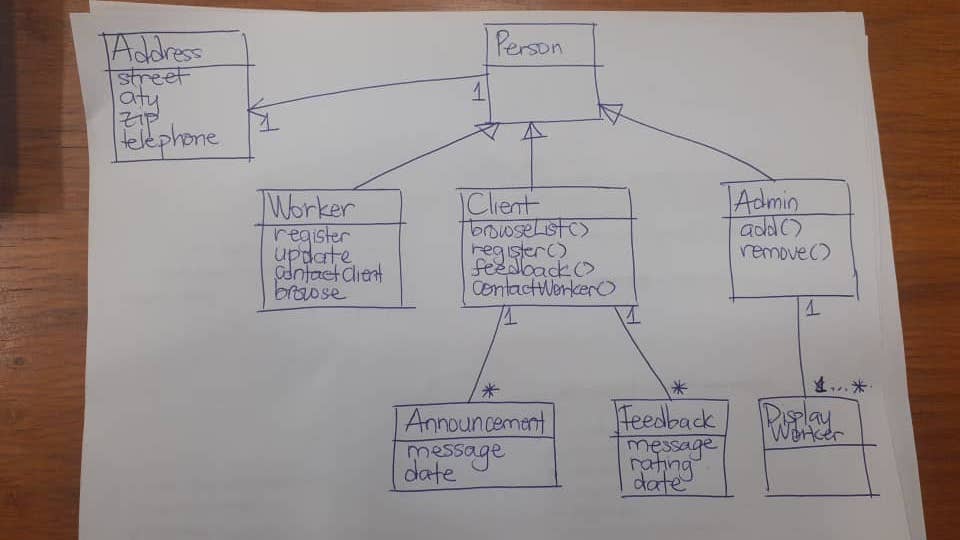 Address
street
city
zip
telephone
Person
1
1
Worker
register
update
contactClient
browse
Client
browseList()
register()
feedback()
contactWorker()
Admin
add()
remove()
1
1
1
*
*
1...*
Announcement
message
date
Feedback
message
rating
date
Display
Worker